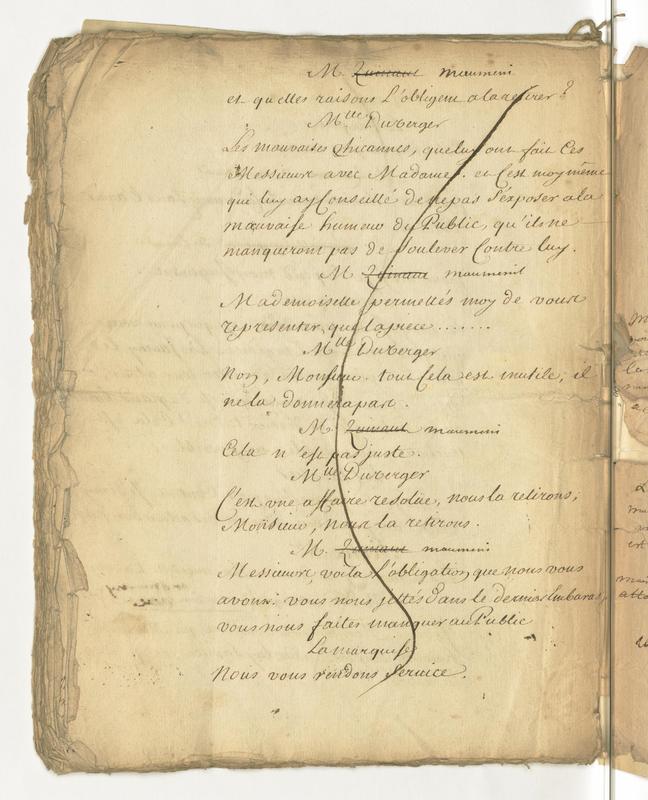 M. Quinaut maumini
et quelles raisons l'obligent a la retirer?
M.lle Du Verger
Les mauvaises Chicannes, que luy ont fait Ces
Messieurs avec Madame. et C'est moy même
qui luy ay Conseillé de ne pas s'exposer a la
mauvaise humeur du Public, qu'ils ne
manqueront pas de soulever Contre luy.
M. Quinaut maumini
Mademoiselle permettés moy de vous
representer, que la piece .......
M.lle Du Verger
Non, Monsieur. tout Cela est inutile, il
ne la donnera pas.
M. Quinaut maumini
Cela n'est pas juste.
M.lle Du Verger
C'est une affaire resolüe, nous la retirons,
Monsieur, nous la retirons.
M. Quinaut maumini
Messieurs, voila l'obligation que nous vous
avons. vous nous jettés dans le dernier Embaras,
vous nous faites manquer au Public
La marquise
Nous vous rendons Service.